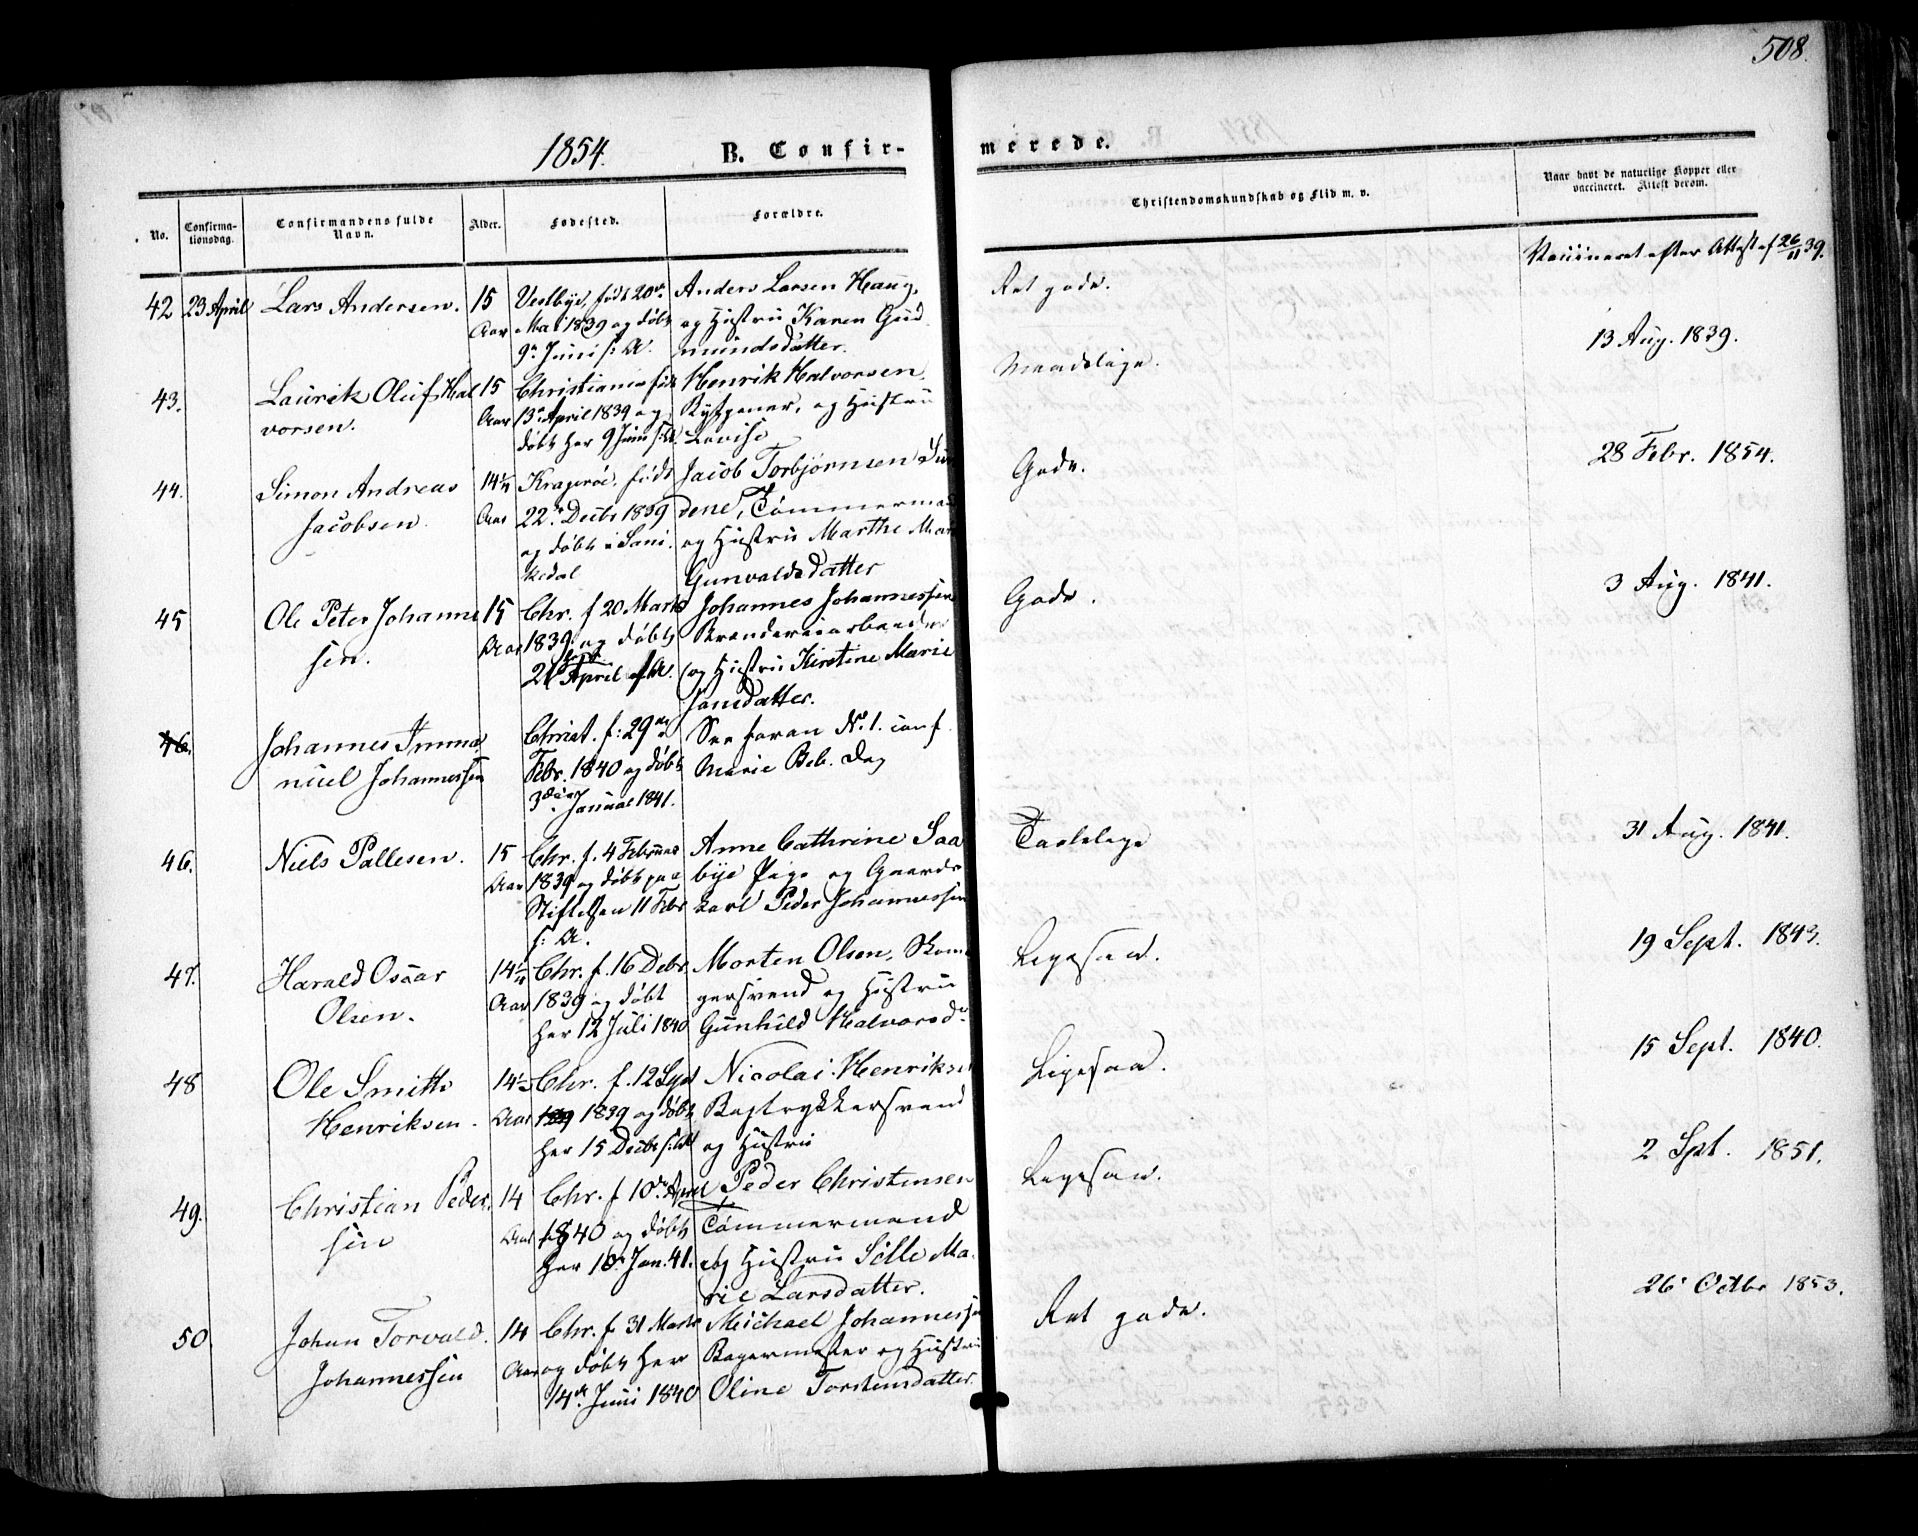 508.
1854.
B. Confir-
merede.
No.
Confirma-
tionsdag.
Confirmandens fulde
Navn.
Alder.
Fødested.
Forældre.
Christendomskundskab og Flid m. v.
Naar havt de naturlige Kopper eller
vaccineret. Attest derom.
42 23 April Lars Andersen. 15 Vestbye, født 20de Anders Larsen Haug,
Aar Mai 1839 og døbt og Hustru Karen Gud
9de Juni s: A. mundsdatter.
Ret gode.
Vaccineret efter Attest af 26/11 39.
43. Laurik Oluf Hal 15 Christiania født Henrik Halvorsen
vorsen. Aar 13de April 1839 og og Hustru
døbt her 9 Juni s: A. Lovise
Maadelige.
13 Aug. 1839.
44. Simon Andreas 14¼ Kragerøe, født Jacob Torbjørnsen
Jacobsen. Aar 22de Decbr 1839 dene, Tømmermand
og døbt i Sani- og Hustru Marthe Mar
kedal Gunvaldsdatter
Gode.
28 Febr. 1854.
45 Ole Peter Johanne 15 Chr. f 20 Marts Johannes Johannessen
sen. Aar 1839 og døbt Brænderiearbeider
21 April s: A. og Hustru Kirstine Marie
Jansdatter.
Gode.
3 Aug. 1841.
46. Johannes Imma Christ. f: 29de See foran No. 1. conf.
nuel Johannessen Febr. 1840 og døbt Marie Beb. Dag
3die Januar 1841.
46. Niels Pallesen. 15 Chr. f. 4 Februar Anne Cathrine Saa
Aar 1839 og døbt paa bye Pige og Gaards
Stiftelsen 11 Febr karl Peder Johannessen
s: A.
Taalelige
31 Aug. 1841.
47. Harald Oscar 14¼ Chr. f. 16 Debr. Morten Olsen, Skoma
Olsen. Aar 1839 og døbt gersvend og Hustru
her 12 Juli 1840 Gunhild Halvorsdr
Ligesaa.
19 Sept. 1843.
48 Ole Smith 14½ Chr. f. 12 Sept Nicolai Henriksen
Henriksen. Aar 1839 og døbt Bogtrykkersvend
her 15 Decbr s: A og Hustru
Ligesaa.
15 Sept. 1840.
49. Christian Peder 14 Chr. f 10de April Peder Christensen
sen Aar 1840 og døbt Tømmermand
her 10de Jan. 41. og Hustru Sille Ma-
rie Larsdatter.
Ligesaa.
2 Spt. 1851.
50. Johan Torvald 14 Chr. f. 31 Marts Michael Johannessen
Johannessen Aar og døbt her Bagermester og Hustru
14de Juni 1840 Oline Torstensdatter.
Ret gode.
26 Octbr 1853.